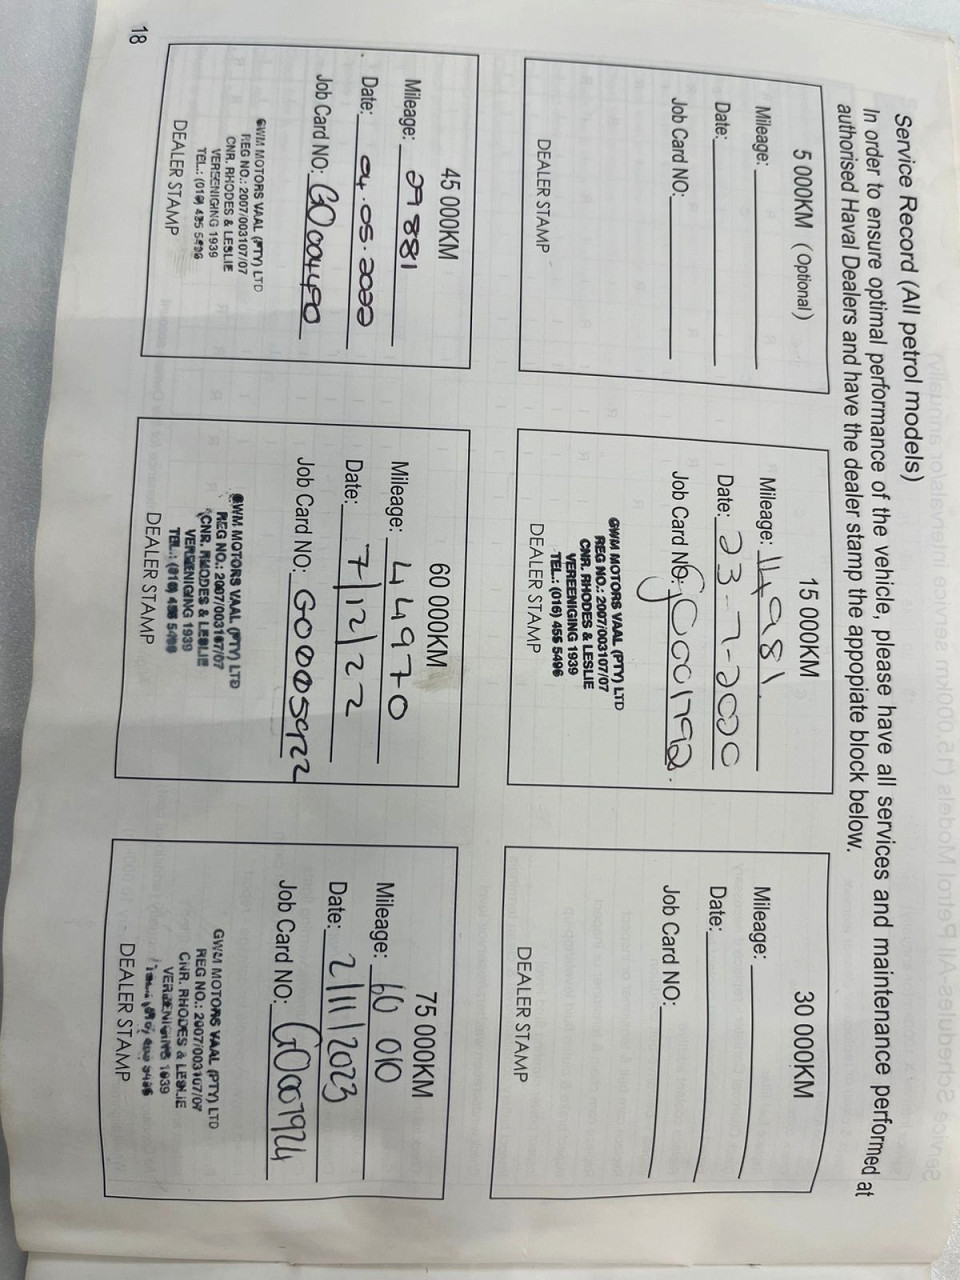 Service Record (All petrol models)
In order to ensure optimal performance of the vehicle, please have all services and maintenance performed at
authorised Haval Dealers and have the dealer stamp the appopiate block below.
5 000KM (Optional)
Mileage:
Date:
Job Card NO:
DEALER STAMP
15 000KM
Mileage: 14981
Date: 23-7-2020
Job Card NO: GO001792.
GWM MOTORS VAAL (PTY) LTD
REG NO.: 2007/003107/07
CNR. RHODES & LESLIE
VEREENIGING 1939
TEL.: (016) 455 5496
DEALER STAMP
30 000KM
Mileage:
Date:
Job Card NO:
DEALER STAMP
45 000KM
Mileage: 29881
Date: 04.05.2022
Job Card NO: GO004490
GWM MOTORS VAAL (PTY) LTD
REG NO.: 2007/003107/07
CNR. RHODES & LESLIE
VEREENIGING 1939
TEL.: (016) 455 5496
DEALER STAMP
60 000KM
Mileage: 44970
Date: 7/12/22
Job Card NO:
GWM MOTORS VAAL (PTY) LTD
REG NO.: 2007/003107/07
CNR. RHODES & LESLIE
VEREENIGING 1939
TEL.: (016) 455 5496
DEALER STAMP
75 000KM
Mileage: 60 010
Date: 2/11/2023
Job Card NO: GO007924
GWM MOTORS VAAL (PTY) LTD
REG NO.: 2007/003107/07
CNR. RHODES & LESLIE
VEREENIGING 1939
DEALER STAMP
18